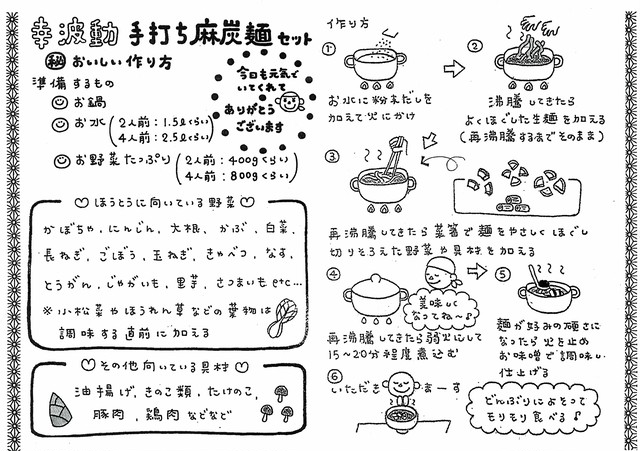 幸波動 手打ち麻炭麺セット
㊙おいしい作り方
今日も元気で
いてくれて
ありがとう
ございます
準備するもの
お鍋
お水(2人前:1.5ℓくらい
4人前:2.5ℓくらい)
お野菜たっぷり(2人前:400gくらい
4人前:800gくらい)
ほうとうに向いている野菜
かぼちゃ、にんじん、大根、かぶ、白菜、
長ねぎ、ごぼう、玉ねぎ、きゃべつ、なす、
とうがん、じゃがいも、里芋、さつまいもetc…
※小松菜やほうれん草などの葉物は
調味する直前に加える
その他向いている具材
油揚げ、きのこ類、たけのこ、
豚肉、鶏肉などなど
作り方
①
お水に粉末だしを
加えて火にかけ
②
沸騰してきたら
よくほぐした生麺を加える
(再沸騰するまでそのまま)
③
再沸騰してきたら菜箸で麺をやさしくほぐし
切りそろえた野菜や具材を加える
④
美味しく
なってね〜♪
再沸騰してきたら弱火にして
15~20分程度煮込む
⑤
麺が好みの硬さに
なったら火を止め
お味噌で調味し
仕上げる
⑥
いただきまーす
どんぶりによそって
モリモリ食べる♪